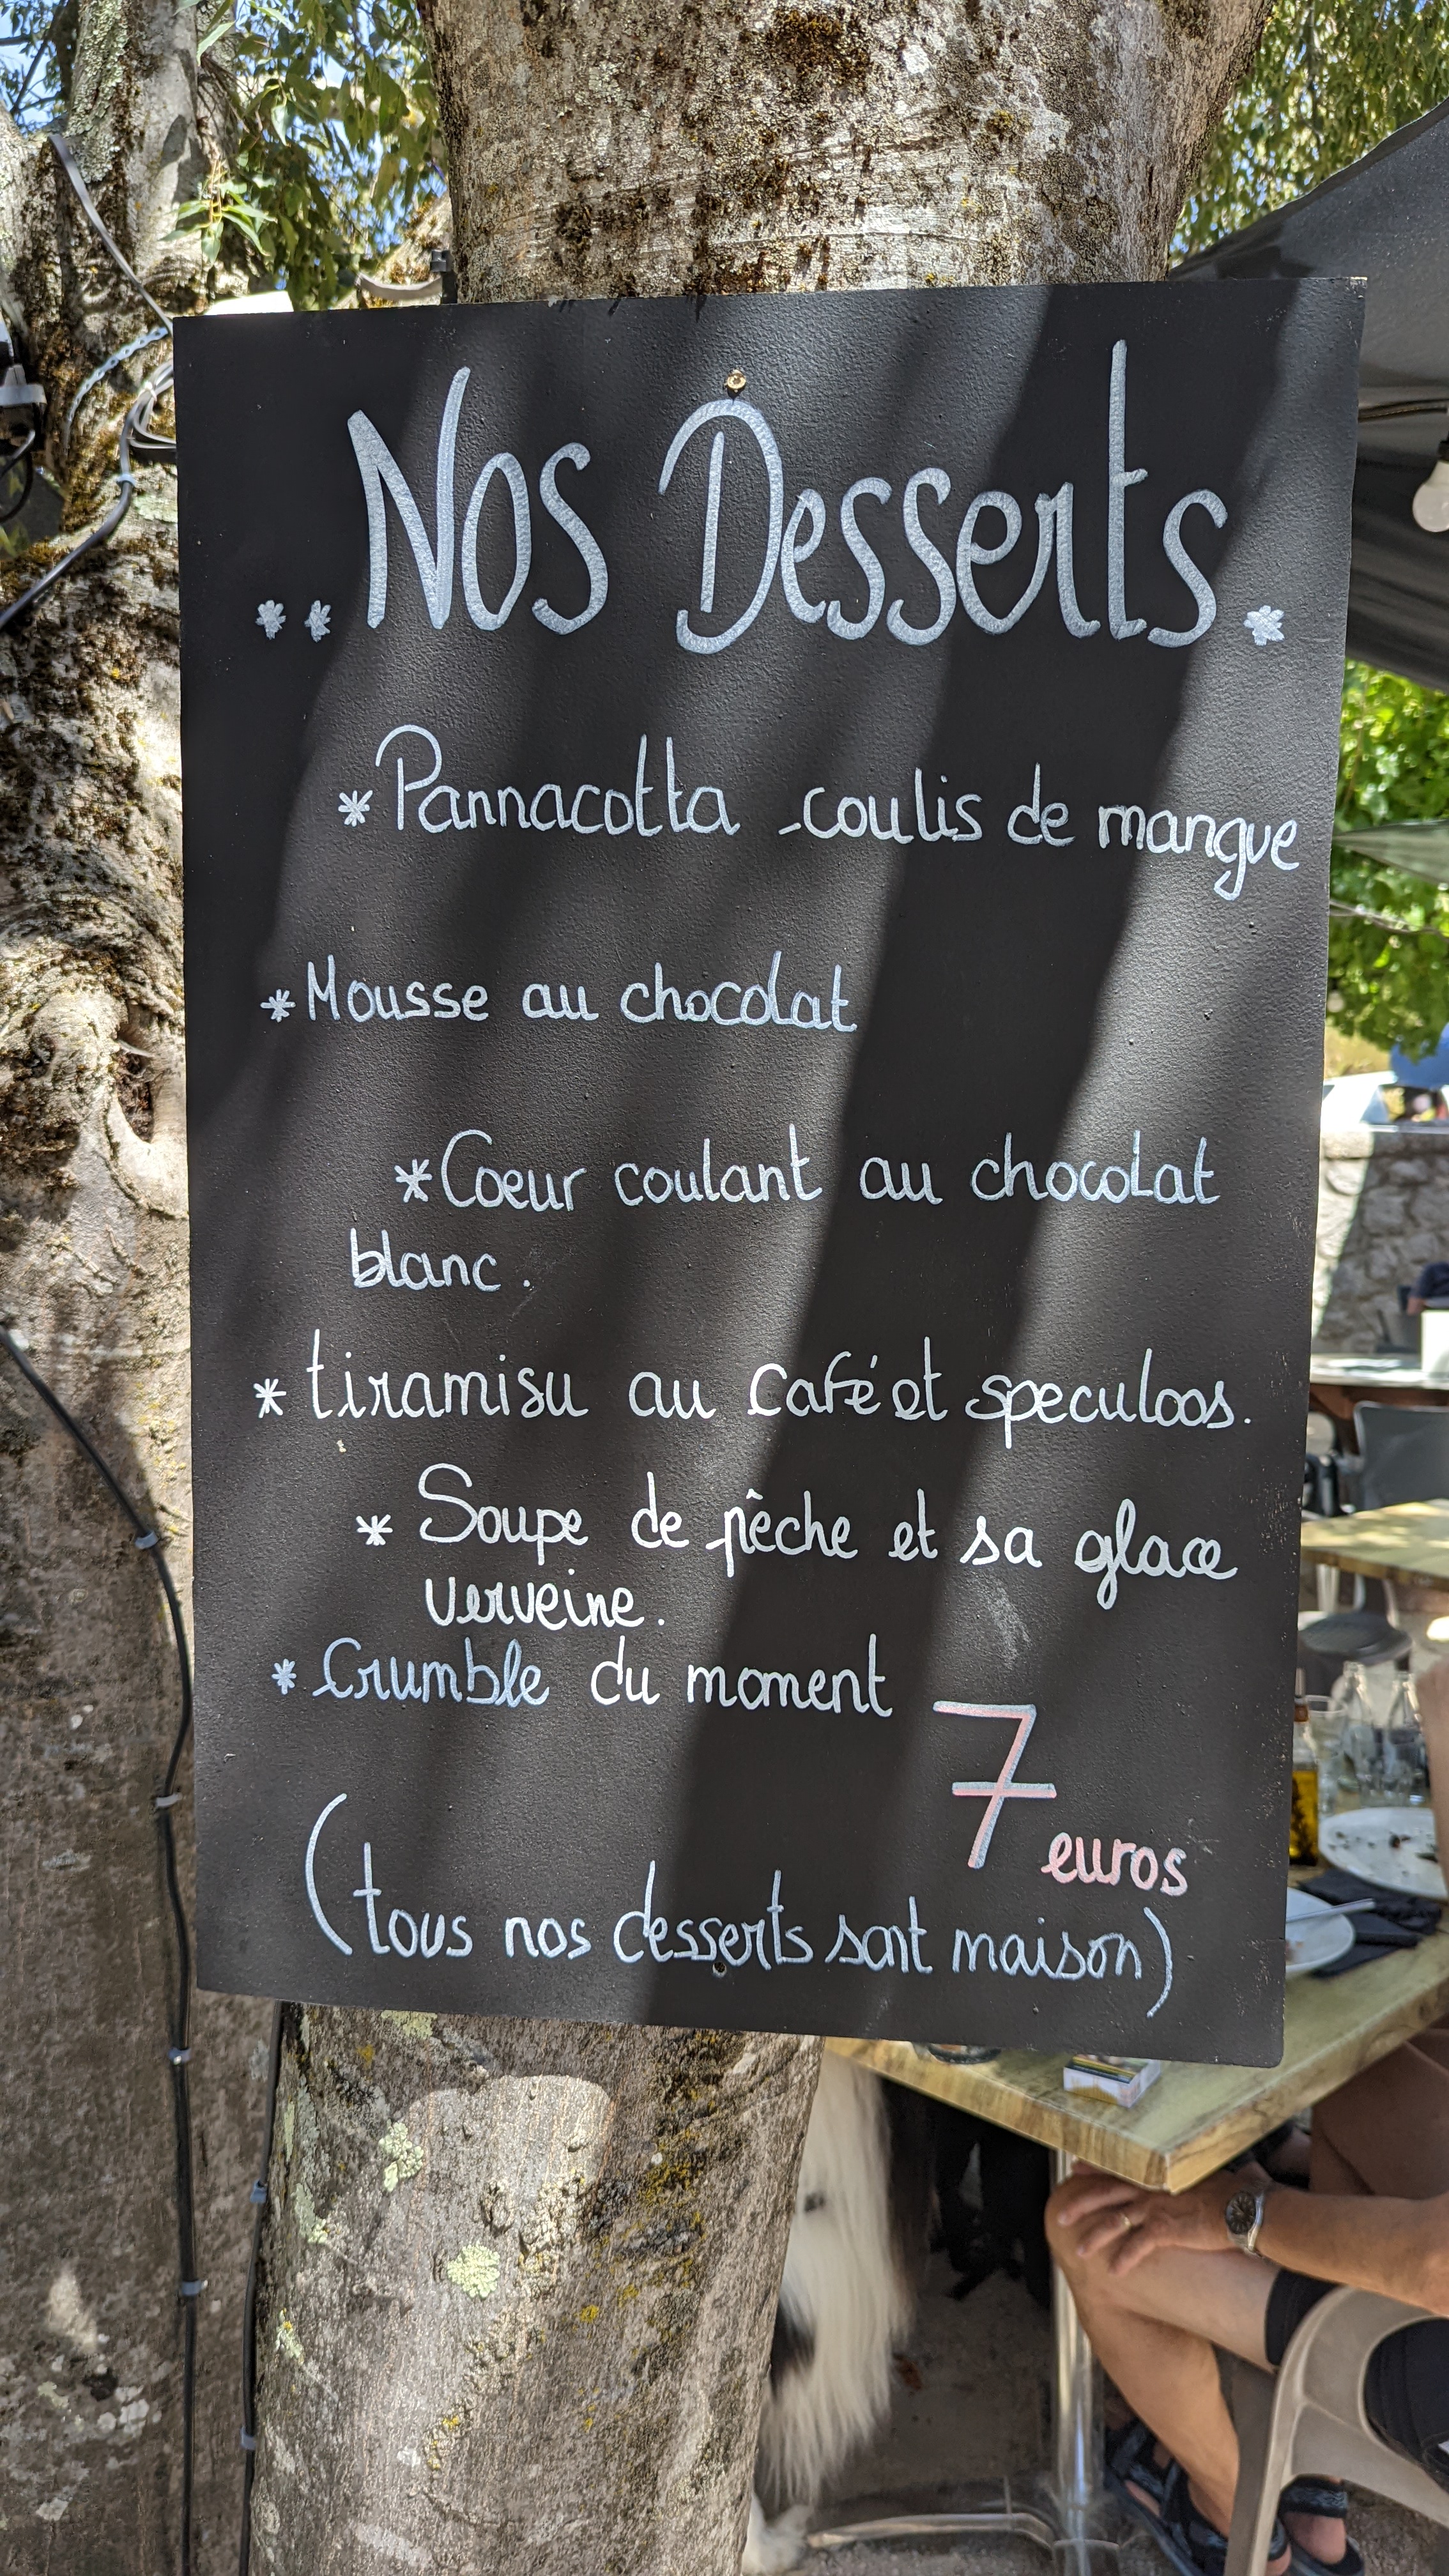 Nos Desserts
* Pannacotta - coulis de mangue
* Mousse au chocolat
* Coeur coulant au chocolat
blanc.
* tiramisu au café et speculoos.
* Soupe de pêche et sa glace
verveine.
* Crumble du moment
7 euros
(tous nos desserts sont maison)